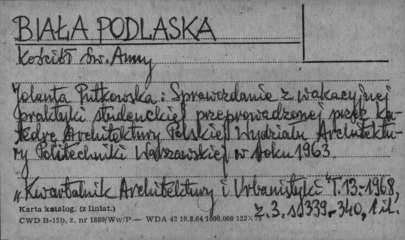 BIAŁA PODLASKA
Kościół Św. Anny
Jolanta Putkowska: Sprawozdanie z wakacyjnej
praktyki studenckiej przeprowadzonej przez Ka-
tedrę Architektury Polskiej Wydziału Architektu-
ry Politechniki Warszawskiej w roku 1963.
„Kwartalnik Architektury i Urbanistyki" T. 13-1968,
z. 3. s. 339-340, 1 il.
Karta katalog. (z liniat.)
CWD B-15b, z. nr 1880/Ww/P — WDA 42 19.8.64